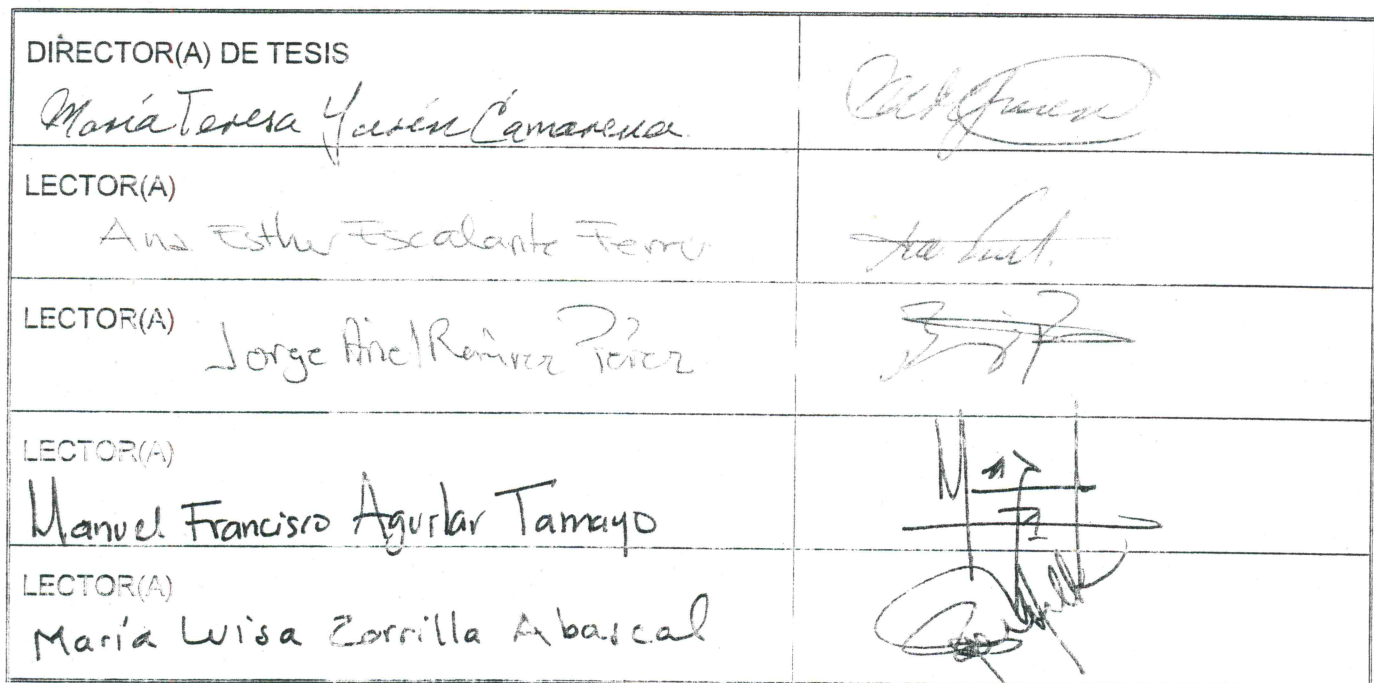 DIRECTOR(A) DE TESIS
María Teresa Yurén Camarena
LECTOR(A)
Ana Esther Escalante Ferrer
LECTOR(A)
Jorge Ariel Ramírez Pérez
LECTOR(A)
Manuel Francisco Aguilar Tamayo
LECTOR(A)
María Luisa Zorrilla Abascal